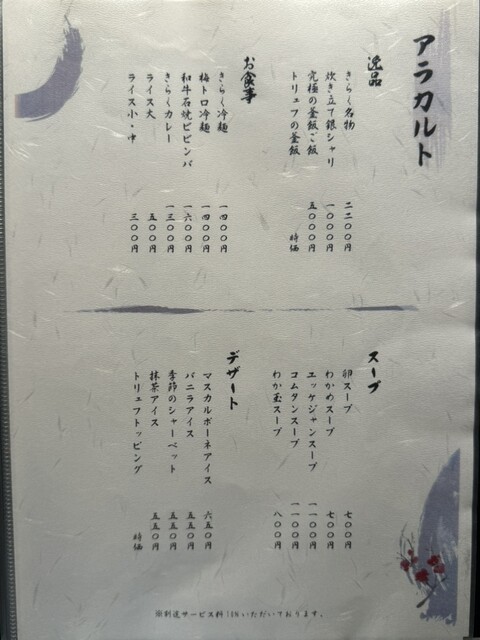 アラカルト
逸品
きらく名物 二二〇〇円
炊き立て銀シャリ 一〇〇〇円
究極の釜飯ご飯 五〇〇〇円
トリュフの釜飯 時価
お食事
きらく冷麺 一四〇〇円
梅トロ冷麺 一四〇〇円
和牛石焼ビビンバ 一六〇〇円
きらくカレー 一三〇〇円
ライス大 五〇〇円
ライス小・中 三〇〇円
スープ
卵スープ 七〇〇円
わかめスープ 七〇〇円
ユッケジャンスープ 一一〇〇円
コムタンスープ 一一〇〇円
わか玉スープ 八〇〇円
デザート
マスカルポーネアイス 六五〇円
バニラアイス 五五〇円
季節のシャーベット 五五〇円
抹茶アイス 五五〇円
トリュフトッピング 時価
※別途サービス料10%いただいております。